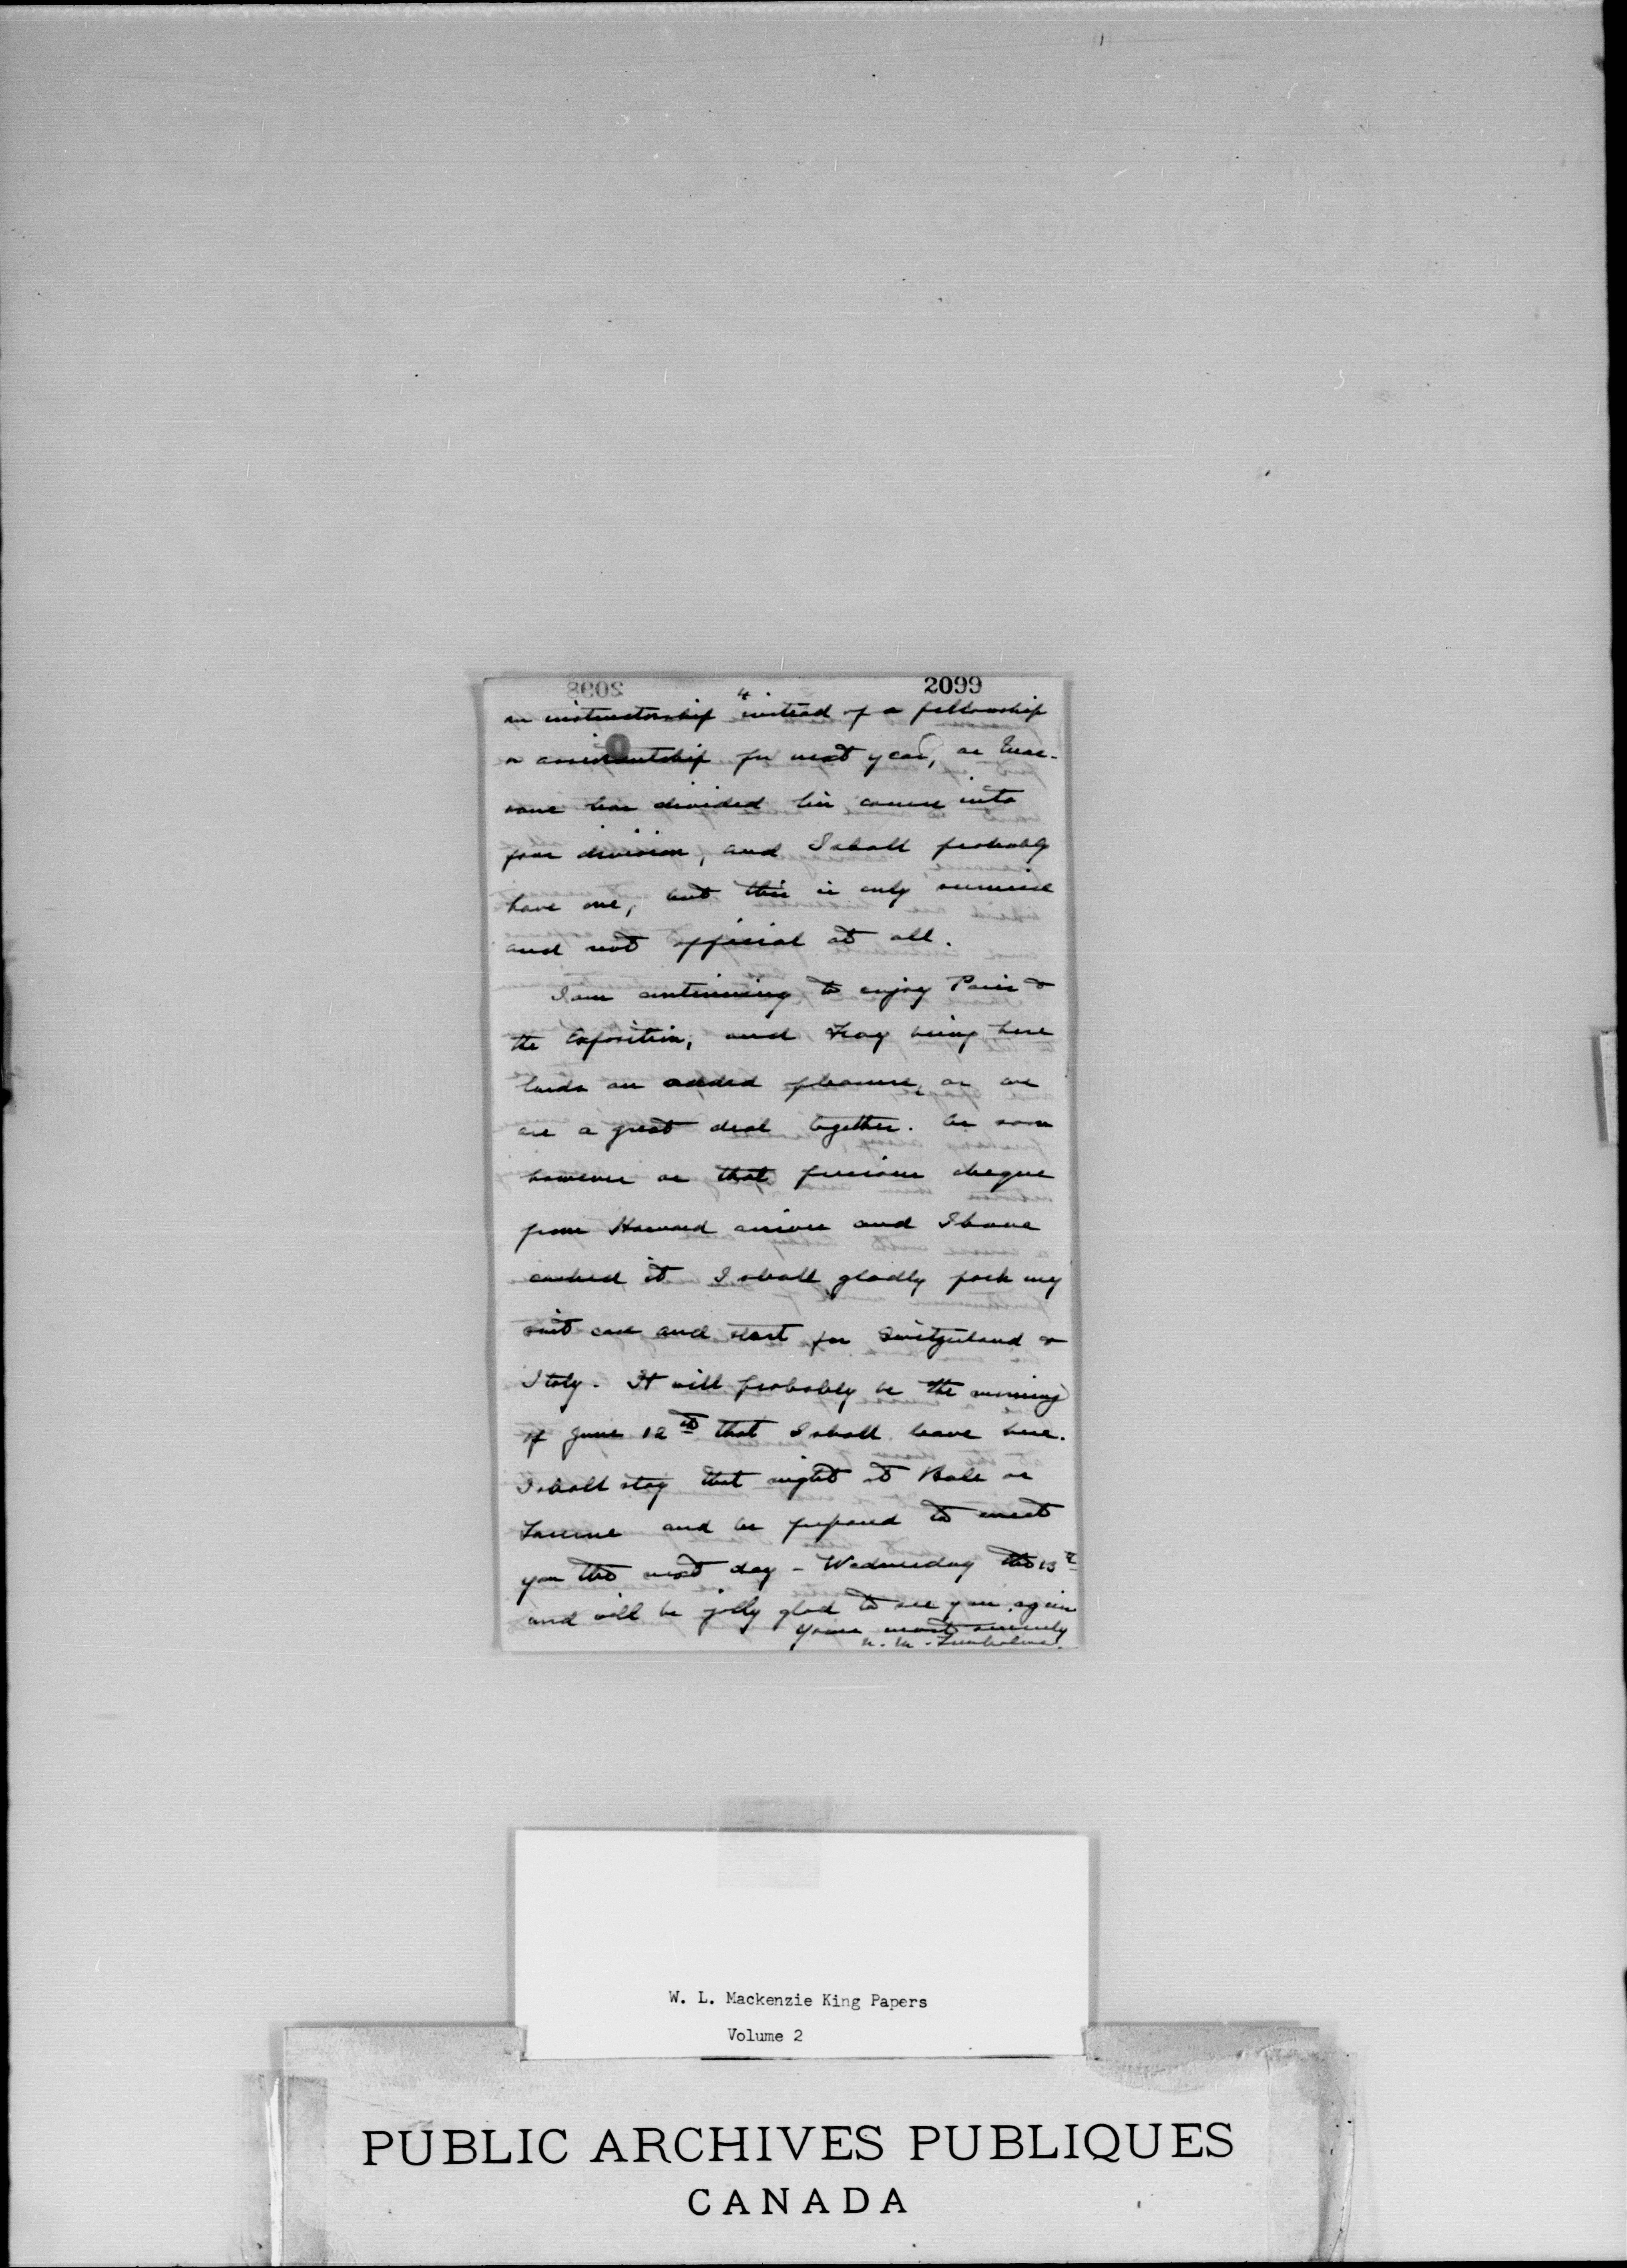 2099
4
an instructorship instead of a fellowship
or assistantship for next year, as
has divided his course into
four divisions, and I shall probably
have one, but this is only surmise
and not official at all.
I am continuing to enjoy Paris &
the Exposition, and being here
lends an added pleasure, as we
are a great deal together. As soon
however as that precious cheque
from Harvard arrives and I have
cashed it I shall gladly pack my
suit case and start for Switzerland &
Italy. It will probably be the morning
of June 12th that I shall leave here.
I shall stay that night at Bale or
Lucerne and be prepared to meet
you the next day - Wednesday the 13th
and will be jolly glad to see you again
Yours most sincerely
N. M. Trenholme.
W. L. Mackenzie King Papers
Volume 2
PUBLIC ARCHIVES PUBLIQUES
CANADA